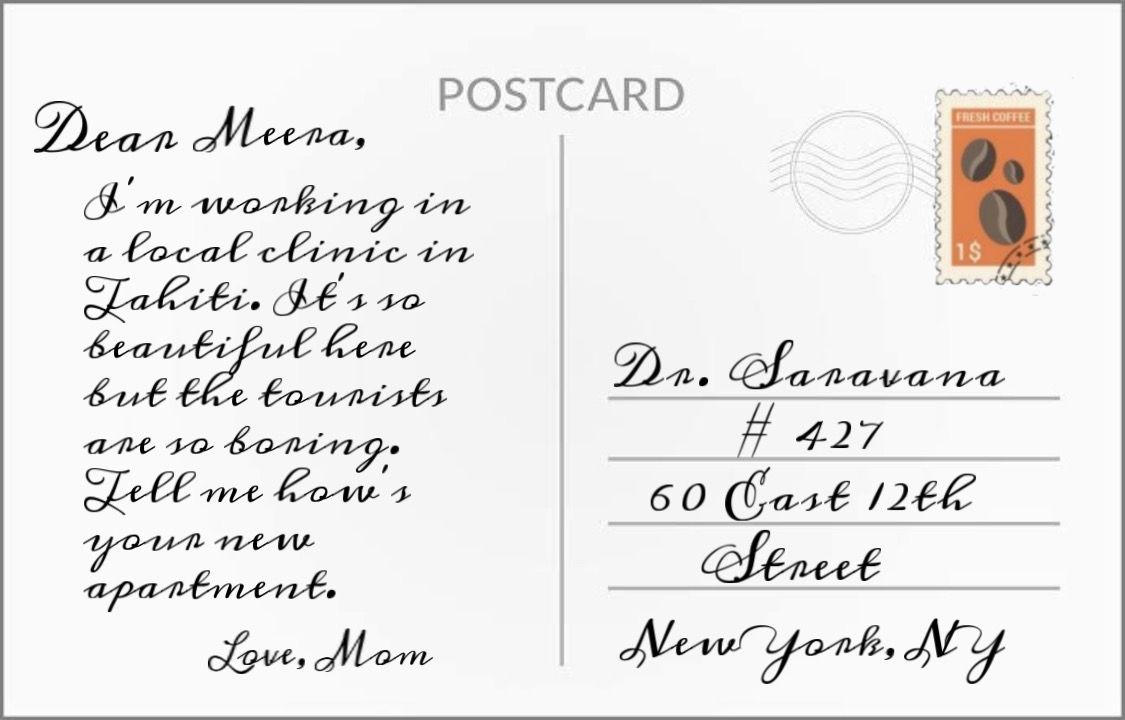 POSTCARD
Dear Meera,
I'm working in
a local clinic in
Tahiti. It's so
beautiful here
but the tourists
are so boring.
Tell me how's
your new
apartment.
Love, Mom
FRESH COFFEE
1$
Dr. Saravana
# 427
60 East 12th
Street
New York, NY